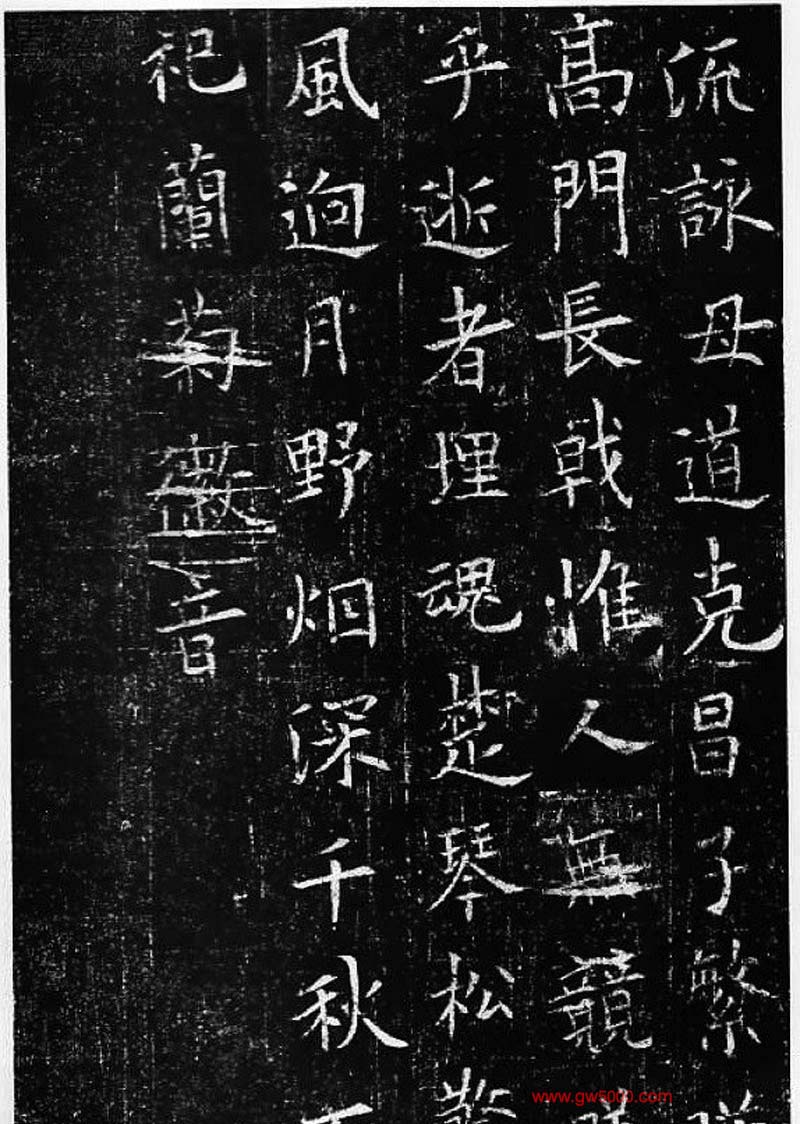 流詠母道克昌子繁
髙門長戟惟人無競
乎逝者埋魂楚琴松
風逈月野烟深千秋
祀蘭菊徽音
www.gw5000.com